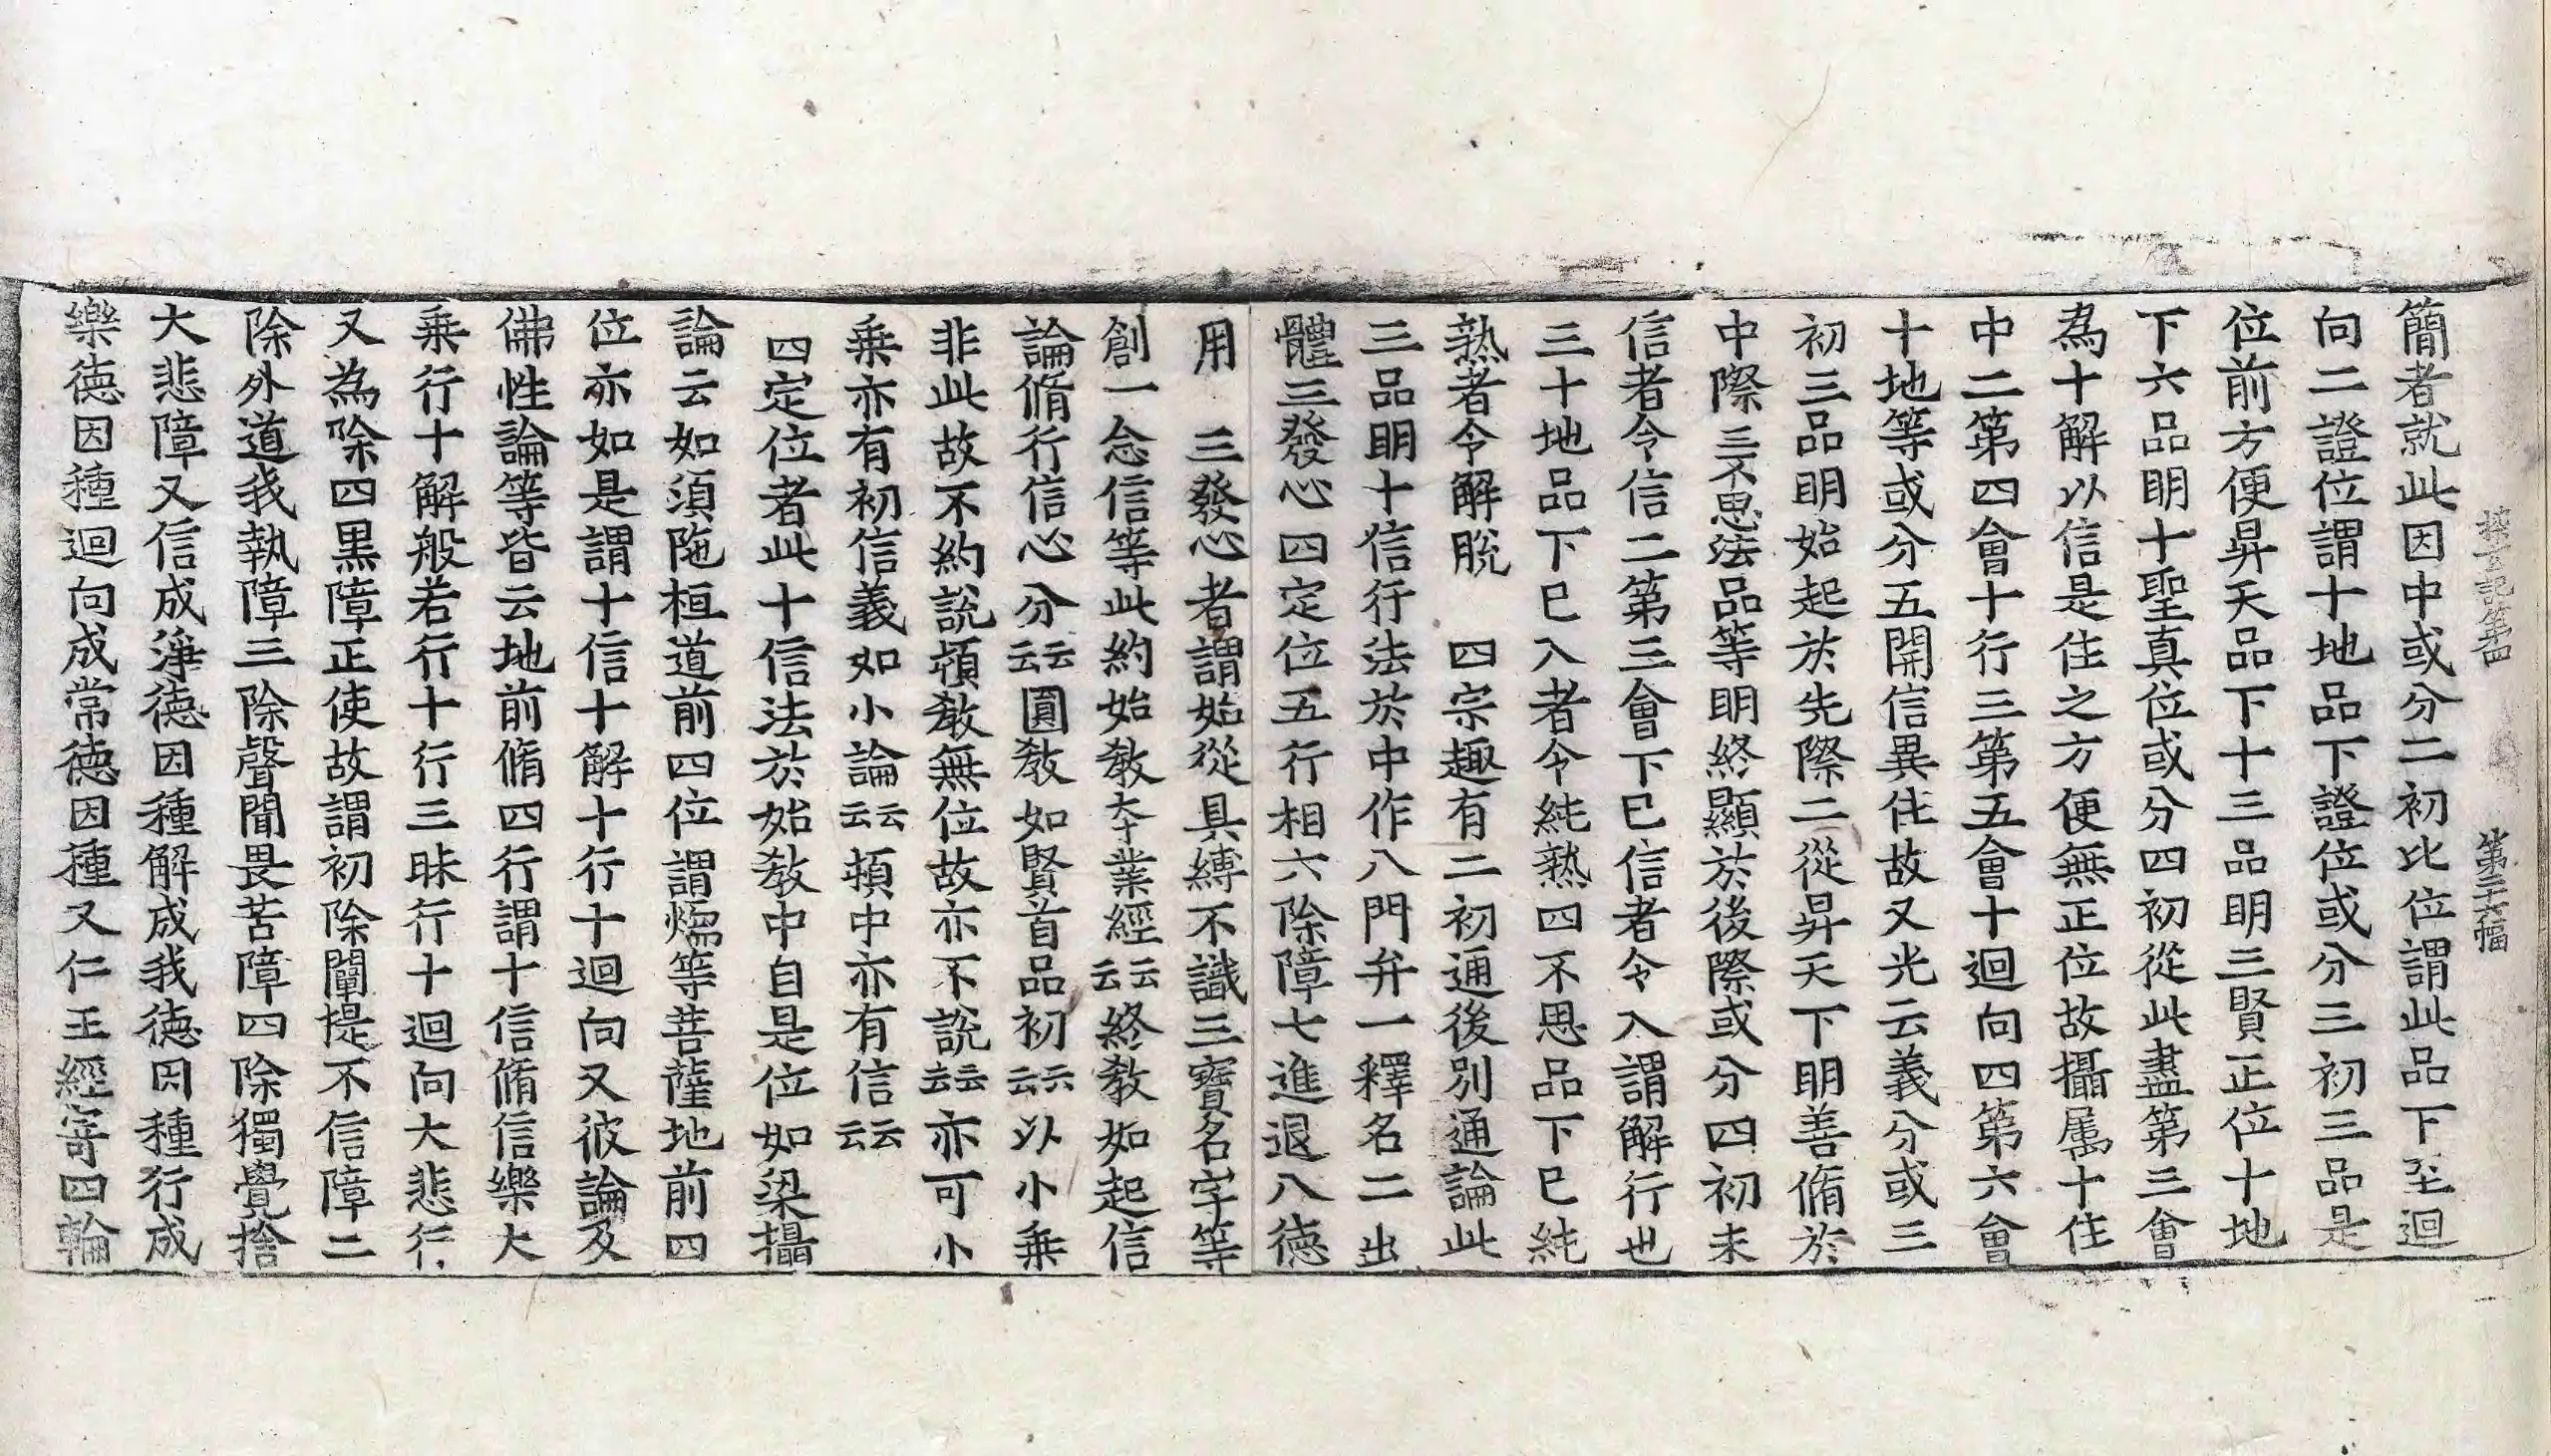 探玄記第四 第二十六幅
簡者就此因中或分二初比位謂此品下至迴
向二證位謂十地品下證位或分三初三品是
位前方便昇天品下十三品明三賢正位十地
下六品明十聖真位或分四初從此盡第三會
為十解以信是住之方便無正位故攝属十住
中二第四會十行三第五會十迴向四第六會
十地等或分五開信異住故又光云義分或三
初三品明始起於先際二從昇天下明善脩於
中際三不思法品等明終顯於後際或分四初未
信者令信二第三會下已信者令入謂解行也
三十地品下已入者令純熟四不思品下已純
熟者令解脫　四宗趣有二初通後別通論此
三品明十信行法於中作八門弁一釋名二出
體三發心四定位五行相六除障七進退八德
用　三發心者謂始從具縛不識三寶名字等
創一念信等此約始教本業經云云終教如起信
論脩行信心分云云圓教如賢首品初云云以小乗
非此故不約說頓教無位故亦不說云云亦可小
乗亦有初信義如小論云云頓中亦有信云云
四定位者此十信法於始教中自是位如梁攝
論云如須陁桓道前四位謂煗等菩薩地前四
位亦如是謂十信十解十行十迴向又彼論及
佛性論等皆云地前脩四行謂十信脩信樂大
乗行十解般若行十行三昧行十迴向大悲行
又為除四黒障正使故謂初除闡提不信障二
除外道我執障三除聲聞畏苦障四除獨覺捨
大悲障又信成淨德因種解成我德因種行成
樂德因種迴向成常德因種又仁王經寄四輪